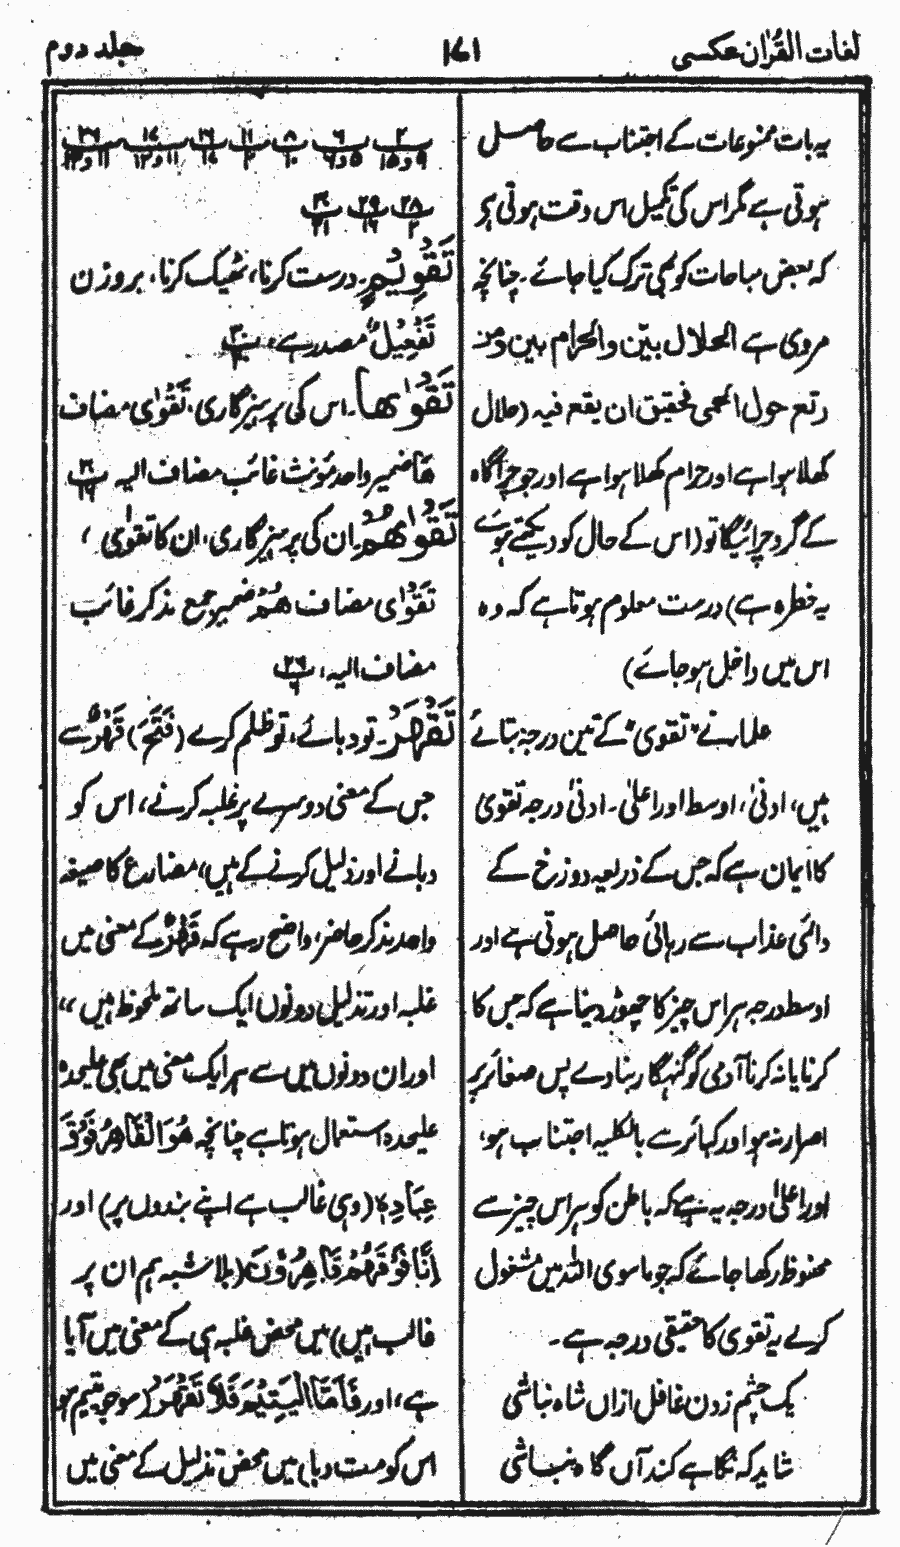 لغات القرآن عکسی
۱۷۱
جلد دوم
یہ بات ممنوعات کے اجتناب سے حاصل
ہوتی ہے مگر اس کی تکمیل اس وقت ہوتی ہے
کہ بعض مباحات کو بھی ترک کیا جائے۔ چنانچہ
مروی ہے الحلال بیّن والحرام بین ومن
رتع حول الحمی فحقیق ان یقع فیہ (حلال
کھلا ہوا ہے اور حرام کھلا ہوا ہے اور جو چراگاہ
کے گرد چرائیگا تو (اس کے حال کو دیکھتے ہوئے
یہ خطرہ ہے) درست معلوم ہوتا ہے کہ وہ
اس میں داخل ہو جائے)
علماء نے "تقوی" کے تین درجہ بتائے
ہیں، ادنیٰ، اوسط اور اعلیٰ۔ ادنیٰ درجہ تقویٰ
کا ایمان ہے کہ جس کے ذریعہ دوزخ کے
دائمی عذاب سے رہائی حاصل ہوتی ہے اور
اوسط درجہ ہر اس چیز کا چھوڑ دینا ہے کہ جس کا
کرنا یا نہ کرنا آدمی کو گنہگار بنا دے پس صغائر پر
اصرار نہ ہو اور کبائر سے بالکلیہ اجتناب ہو،
اور اعلیٰ درجہ یہ ہے کہ باطن کو ہر اس چیز سے
محفوظ رکھا جائے کہ جو ماسوی اللہ میں مشغول
کرے یہ تقوی کا حقیقی درجہ ہے۔
یک چشم زدن غافل ازاں شاہ نباشی
شاید کہ نگاہے کند آں گاہ نباشی
۲ ۶ ۸ ۱۱ ۱۶ ۱۷ ۲۶
۹ و ۱۵ ۵ و ۶ ۱۰ ۲ ۱۶ ۱۱ و ۱۲
۲۸ ۲۹
۲ ۱۶
تَقْوِیْمٍ۔ درست کرنا، ٹھیک کرنا، بروزن
تَفْعِیْلٌ مصدر ہے،
تَقْوٰىهَا۔ اس کی پرہیزگاری، تَقْوٰی مضاف
ھَا ضمیر واحد مؤنث غائب مضاف الیہ
تَقْوٰىهُمْ۔ ان کی پرہیزگاری، ان کا تقویٰ،
تَقْوٰی مضاف ھُمْ ضمیر جمع مذکر غائب
مضاف الیہ، ۲۶
تَقْهَرْ۔ تو دبائے، تو ظلم کرے (فَتَحَ) قَهْرٌ سے
جس کے معنی دوسرے پر غلبہ کرنے، اس کو
دبانے اور ذلیل کرنے کے ہیں، مضارع کا صیغہ
واحد مذکر حاضر، واضح رہے کہ قَهْرٌ کے معنی میں
غلبہ اور تذلیل دونوں ایک ساتھ ملحوظ ہیں،،
اور ان دونوں میں سے ہر ایک معنی میں بھی علیحدہ
علیحدہ استعمال ہوتا ہے چنانچہ هُوَ الْقَاهِرُ فَوْقَ
عِبَادِهٖ (وہی غالب ہے اپنے بندوں پر) اور
اِنَّا فَوْقَهُمْ قَاهِرُوْنَ (بلا شبہ ہم ان پر
غالب ہیں) میں محض غلبہ ہی کے معنی میں آیا
ہے، اور فَاَمَّا الْيَتِيْمَ فَلَا تَقْهَرْ (سو جو یتیم ہو
اس کو مت دبا) میں محض تذلیل کے معنی میں